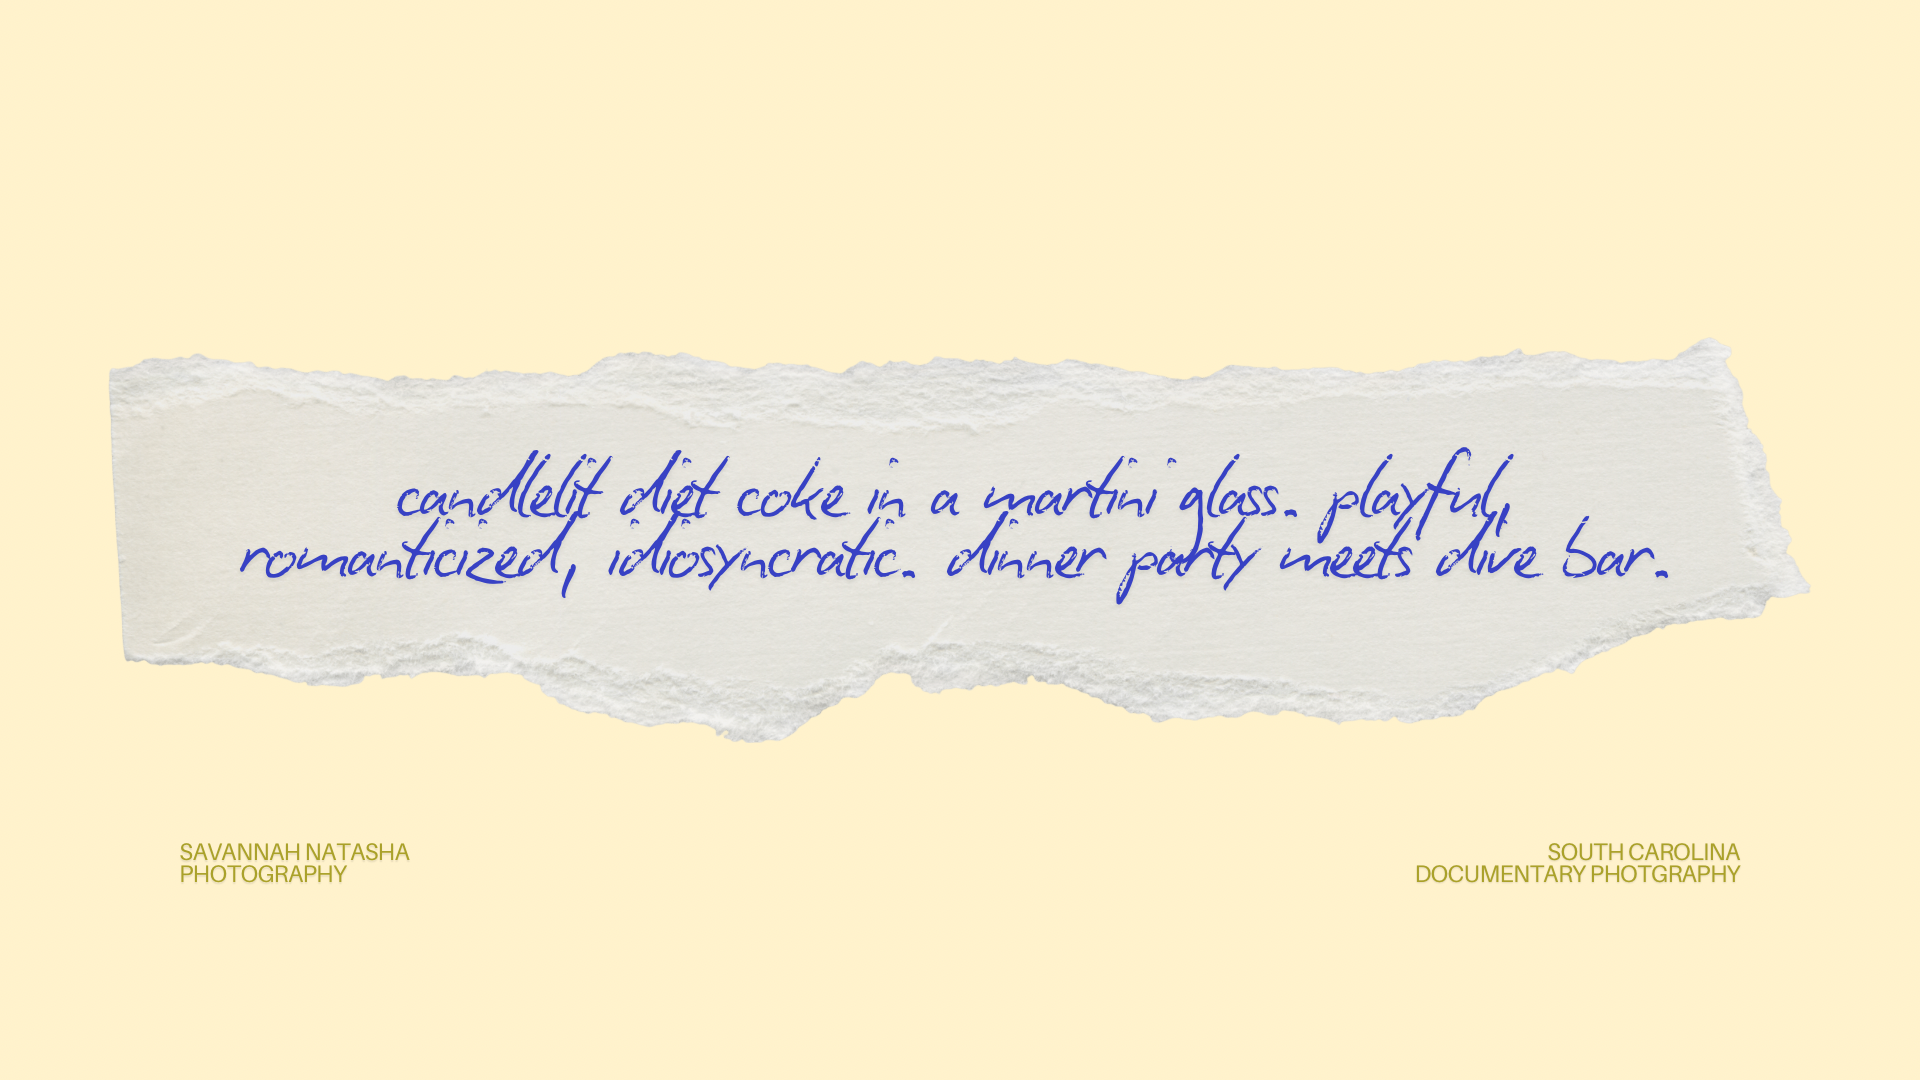 candlelit diet coke in a martini glass. playful,
romanticized, idiosyncratic. dinner party meets dive bar.
SAVANNAH NATASHA
PHOTOGRAPHY
SOUTH CAROLINA
DOCUMENTARY PHOTGRAPHY